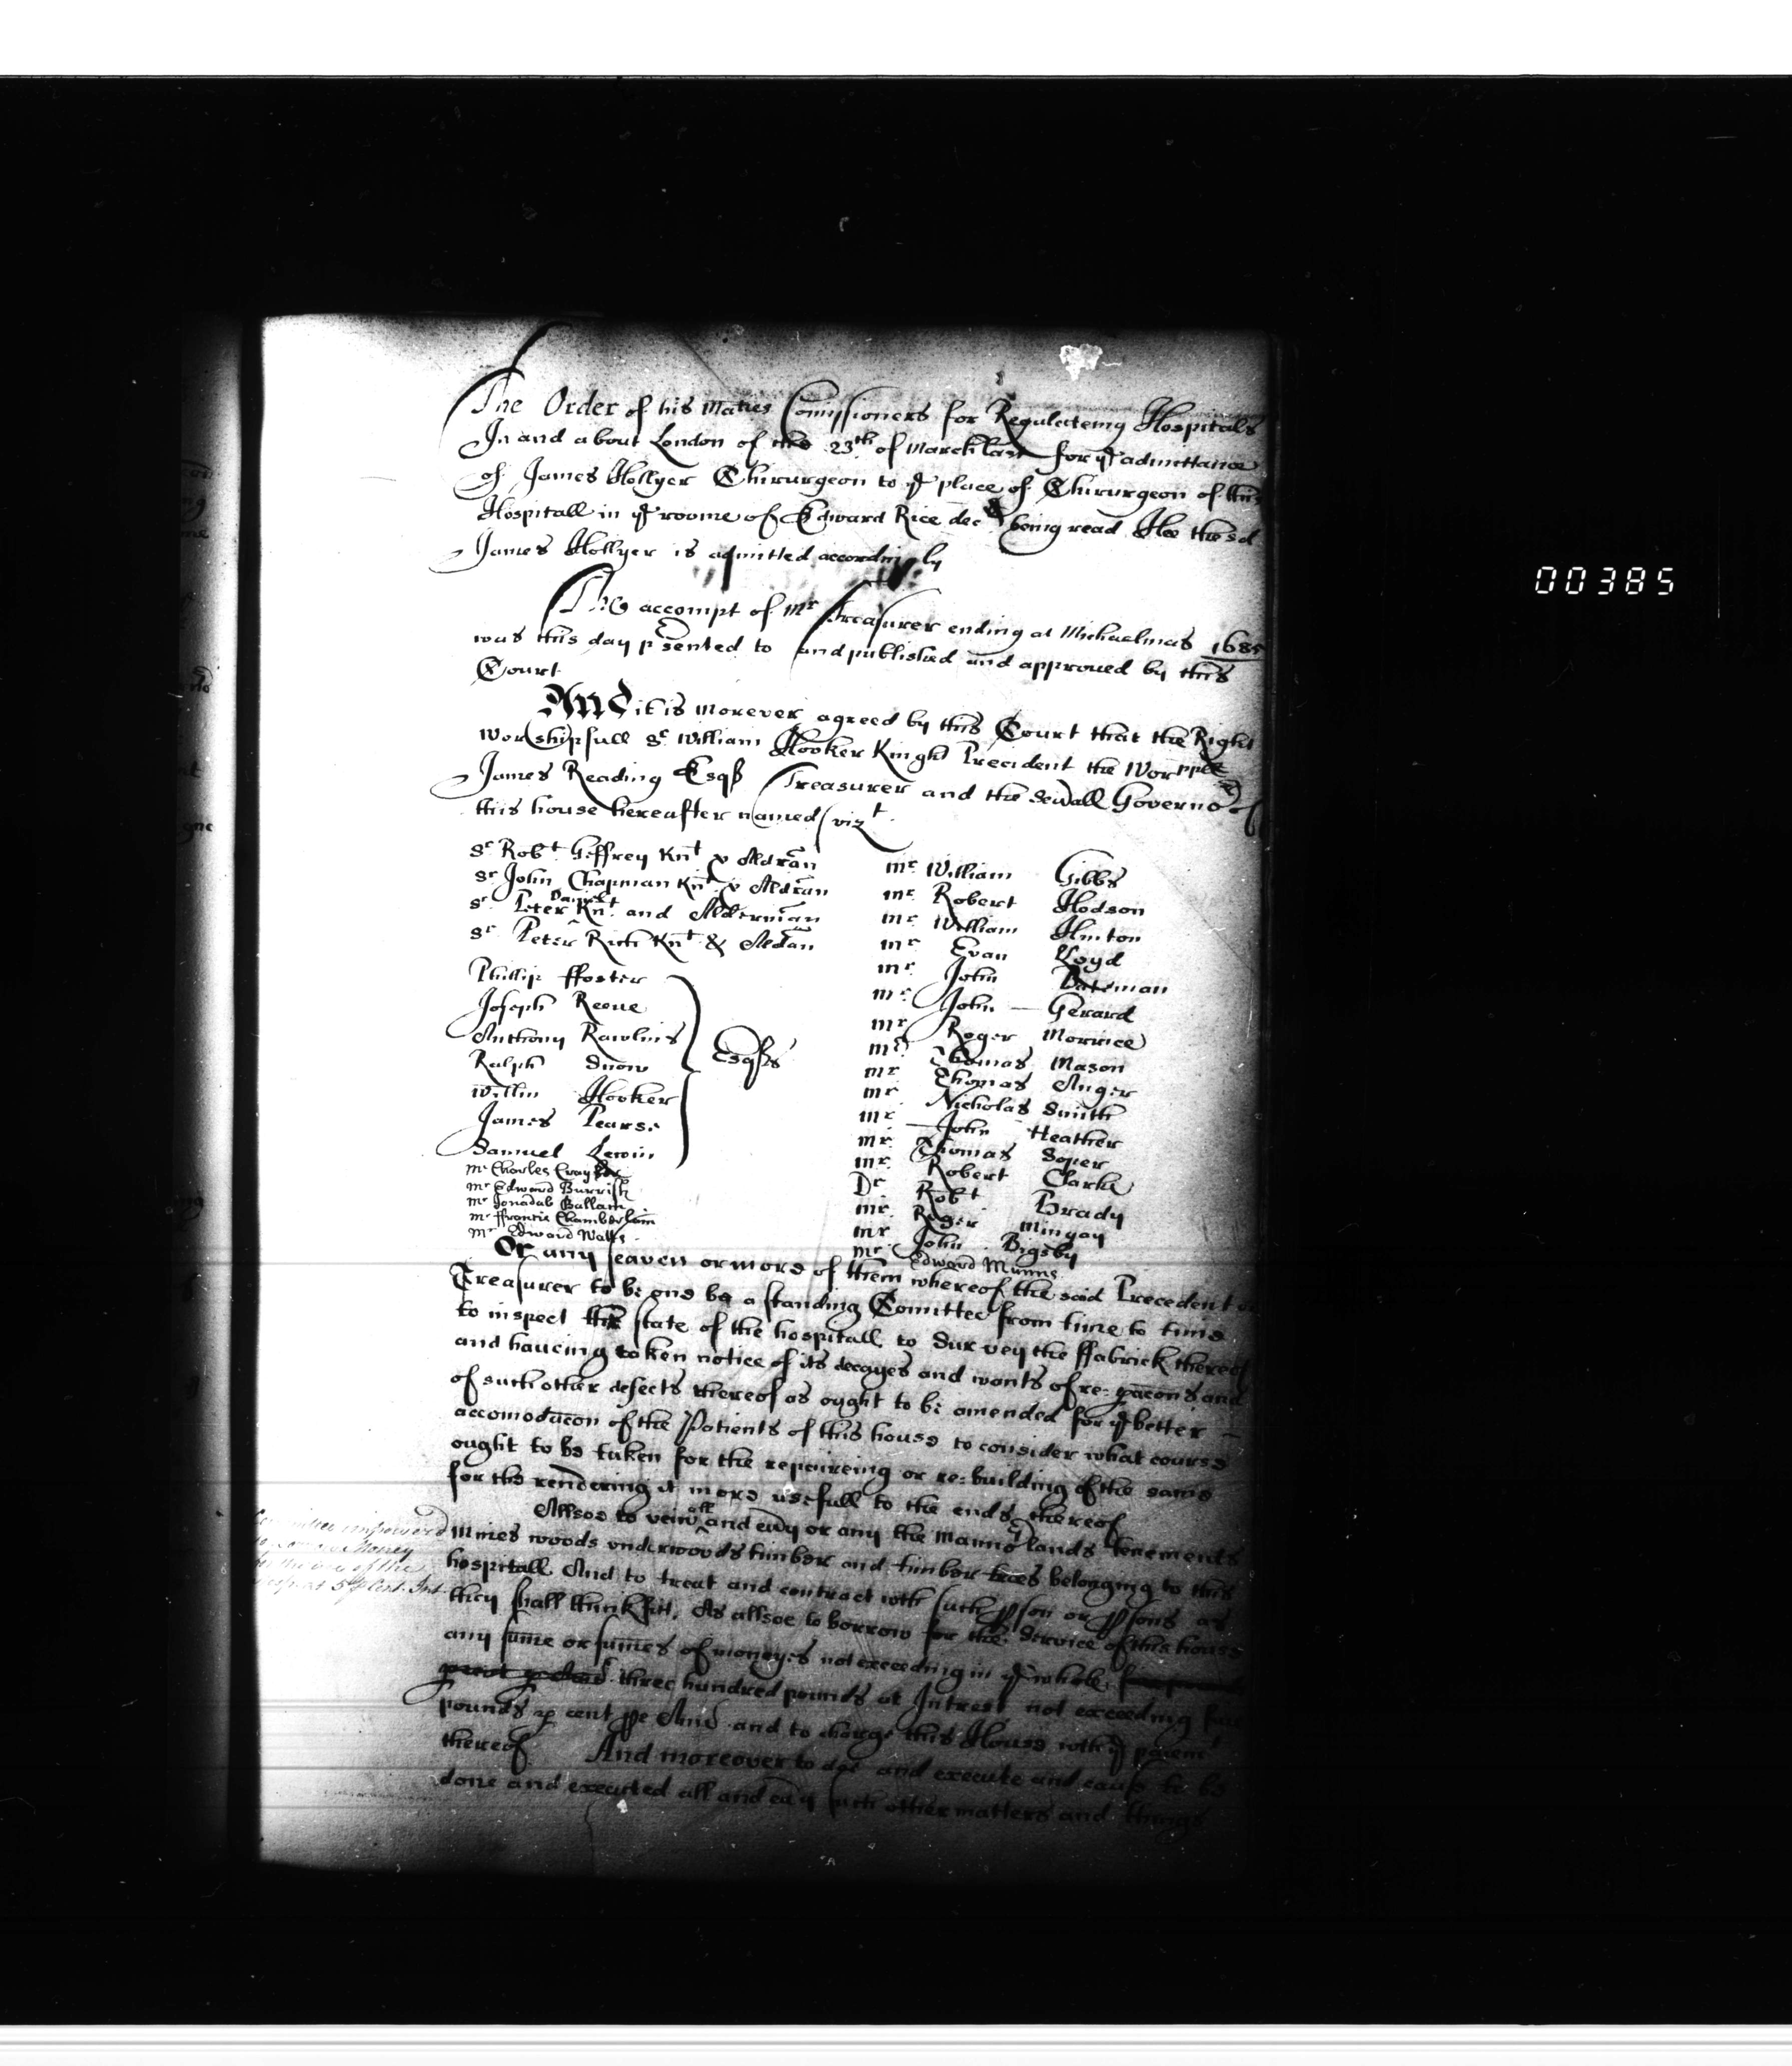 The Order of his Maties Comissioners for Regulateing Hospitals
In and about London of the 23th of March last for ye admittance
of James Hollyer Chirurgeon to ye place of Chirurgeon of this
Hospitall in ye roome of Edward Rice decd being read Hee the sd
James Hollyer is admitted accordingly
The accompt of Mr Treasurer ending at Michaelmas 1685
was this day psented to and published and approved by this
Court
And it is morever agreed by this Court that the Right
Worshipfull Sr William Hooker Kinght Precident the Worppll
James Reading Esqr Treasurer and the sevall Governors of
this house hereafter named vizt
Sr Robt Geffrey Knt & Aldran
Sr John Chapman Knt & Aldran
Sr Peter Daniel Knt and Alderman
Sr Peter Rich Knt & Aldan
Phillip ffoster
Joseph Reeve
Anthony Rawlins
Ralph Snow
Willm Hooker
James Pearse
Samuel Lewin
Esqrs
Mr Charles
Mr Edward Burrish
Mr Jonadab Ballam
Mr ffrancis Chamberlain
Mr Edward Watts
Mr William Gibbs
Mr Robert Hodson
Mr William Hinton
Mr Evan Lloyd
Mr John Bateman
Mr John Gerard
Mr Roger Morrice
Mr Thomas Mason
Mr Thomas Anger
Mr Nicholas Smith
Mr John Heather
Mr Thomas Soper
Mr Robert Clarke
Dr Robt Brady
Mr Roger Mingay
Mr John Bigsby
Mr Edward Munns
Or any seaven or more of them whereof the said Precedent or
Treasurer to be one be a standing Comittee from time to time
to inspect the state of the hospitall to Survey the ffabrick thereof
and haveing taken notice of its decayes and wants of re=pacons and
of such other defects thereof as ought to be amended for ye better
accomodacon of the Patients of this house to consider what course
ought to be taken for the repaireing or re=building of the same
for the rendering it more usefull to the ends thereof
Allsoe to veiw all and evry or any the Mannors lands tenements
Mines woods underwoods timber and timber trees belonging to this
hospitall And to treat and contract with such pson or psons as
they shall think fitt, As allsoe to borrow for the service of this house
any sume or sumes of moneyes not exceeding in ye whole
three hundred pounds at Intrest not exceeding five
pounds p cent pe Anu and to charge this House with ye paiemt
thereof And moreover to doe and execute and caus to be
done and executed all and evry such other matters and things
Committee impowered
Money
the use of the
at 5 p Cent. Int
00385